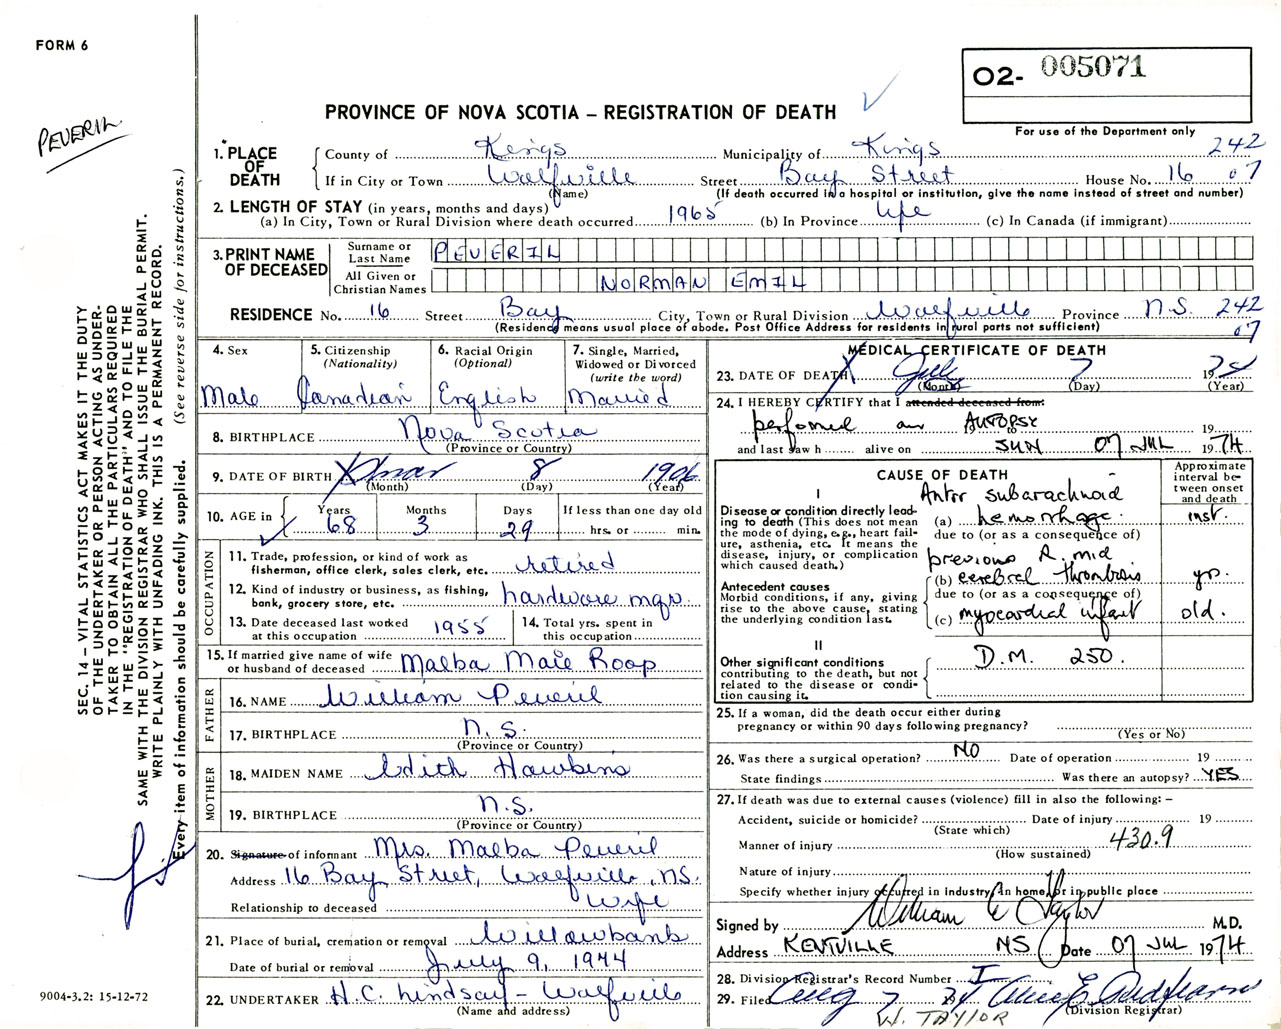 FORM 6
PEVERIL
O2- 005071
For use of the Department only
PROVINCE OF NOVA SCOTIA – REGISTRATION OF DEATH
1. PLACE OF DEATH
County of Kings Municipality of Kings 242
If in City or Town Wolfville Street Bay Street House No. 16 07
(Name) (If death occurred in a hospital or institution, give the name instead of street and number)
2. LENGTH OF STAY (in years, months and days)
(a) In City, Town or Rural Division where death occurred 1965 (b) In Province Life (c) In Canada (if immigrant)
3. PRINT NAME OF DECEASED
Surname or Last Name PEVERIL
All Given or Christian Names NORMAN EMIL
RESIDENCE No. 16 Street Bay City, Town or Rural Division Wolfville Province N.S. 242
(Residence means usual place of abode. Post Office Address for residents in rural parts not sufficient) 07
4. Sex
Male
5. Citizenship
(Nationality)
Canadian
6. Racial Origin
(Optional)
English
7. Single, Married,
Widowed or Divorced
(write the word)
Married
8. BIRTHPLACE Nova Scotia
(Province or Country)
9. DATE OF BIRTH Mar 8 1906
(Month) (Day) (Year)
10. AGE in
Years Months Days If less than one day old
68 3 29 hrs. or min.
OCCUPATION
11. Trade, profession, or kind of work as
fisherman, office clerk, sales clerk, etc. retired
12. Kind of industry or business, as fishing,
bank, grocery store, etc. hardware mgr.
13. Date deceased last worked
at this occupation 1955
14. Total yrs. spent in
this occupation
15. If married give name of wife
or husband of deceased Malba Maie Roop
FATHER
16. NAME William Peveril
17. BIRTHPLACE N.S.
(Province or Country)
MOTHER
18. MAIDEN NAME Edith Hawkins
19. BIRTHPLACE N.S.
(Province or Country)
20. Signature of informant Mrs. Malba Peveril
Address 16 Bay Street, Wolfville, N.S.
Relationship to deceased Wife
21. Place of burial, cremation or removal Willowbank
Date of burial or removal July 9, 1974
22. UNDERTAKER H.C. Lindsay – Wolfville
(Name and address)
MEDICAL CERTIFICATE OF DEATH
23. DATE OF DEATH July 7 1974
(Month) (Day) (Year)
24. I HEREBY CERTIFY that I attended deceased from:
performed an AUTOPSY 19
and last saw h alive on SUN 07 JUL 1974
CAUSE OF DEATH
Approximate interval between onset and death
I
Disease or condition directly leading to death (This does not mean the mode of dying, e.g., heart failure, asthenia, etc. It means the disease, injury, or complication which caused death.)
Anter subarachnoid
(a) hemorrhage. inst.
due to (or as a consequence of)
previous R. mid
Antecedent causes
Morbid conditions, if any, giving rise to the above cause, stating the underlying condition last.
(b) cerebral thrombosis yr.
due to (or as a consequence of)
(c) myocardial infarct old.
II
Other significant conditions contributing to the death, but not related to the disease or condition causing it.
D.M. 250.
25. If a woman, did the death occur either during
pregnancy or within 90 days following pregnancy?
(Yes or No)
26. Was there a surgical operation? NO Date of operation 19
State findings Was there an autopsy? YES
27. If death was due to external causes (violence) fill in also the following: –
Accident, suicide or homicide? Date of injury 19
(State which)
Manner of injury 430.9
(How sustained)
Nature of injury
Specify whether injury occurred in industry, in home, or in public place
Signed by William E Taylor M.D.
Address KENTVILLE NS Date 07 JUL 1974
28. Division Registrar's Record Number
29. Filed Aug 7 74
(Division Registrar)
W. TAYLOR
SEC. 14 – VITAL STATISTICS ACT MAKES IT THE DUTY
OF THE UNDERTAKER OR PERSON ACTING AS UNDER-
TAKER TO OBTAIN ALL THE PARTICULARS REQUIRED
IN THE "REGISTRATION OF DEATH" AND TO FILE THE
SAME WITH THE DIVISION REGISTRAR WHO SHALL ISSUE THE BURIAL PERMIT.
WRITE PLAINLY WITH UNFADING INK. THIS IS A PERMANENT RECORD.
Every item of information should be carefully supplied. (See reverse side for instructions.)
9004-3.2: 15-12-72